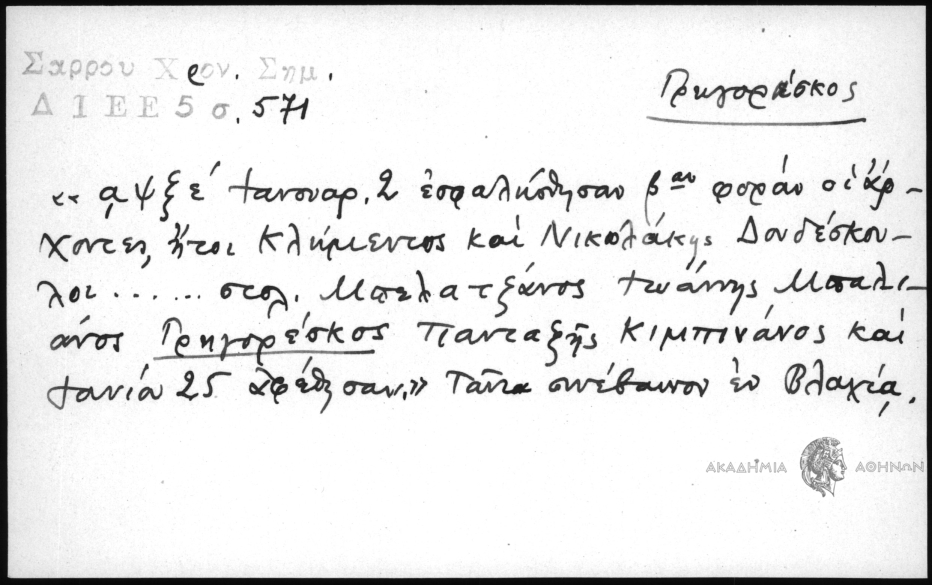 Σαρρου Χρον. Σημ.
Δ Ι Ε Ε 5 σ. 571
Γρηγορέσκος
«αψξε΄ Ιανουαρ. 2 ἐσφαλήσθησαν βαν φοράν οἱ ἄρ-
χοντες, ἤτοι Κλήμεντος καὶ Νικολάκης Δουδέσκου-
λοι ...... στολ. Μπελατζάνος Ιωάννης Μπαλι-
άνος Γρηγορέσκος Πανταζῆς Κιμπινάνος καὶ
Ιανία 25 ἀφέθησαν.» Ταῦτα συνέβαινον ἐν Βλαχίᾳ.
ΑΚΑΔΗΜΙΑ ΑΘΗΝΩΝ